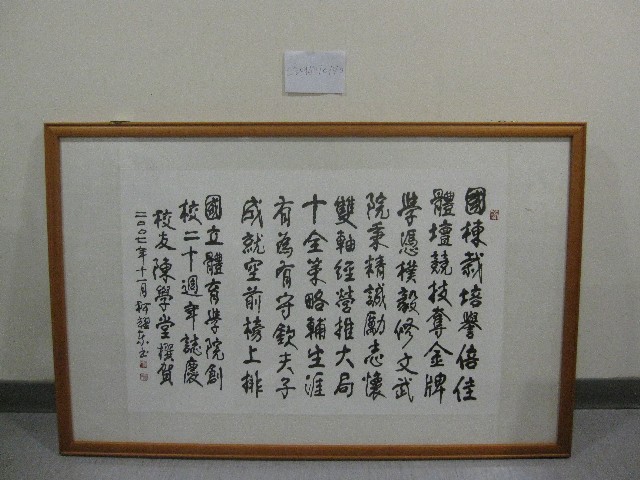 國棟栽培譽倍佳
體壇競技奪金牌
學憑樸毅修文武
院秉精誠勵志懷
雙軸經營推大局
十全策略輔生涯
有為有守欽夫子
成就空前榜上排
國立體育學院創
校二十週年誌慶
校友陳學堂撰賀
二〇〇七年十一月